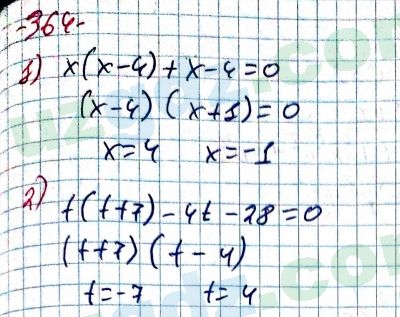 -364-
1) x(x-4)+x-4=0
(x-4)(x+1)=0
x=4 x=-1
2) t(t+7)-4t-28=0
(t+7)(t-4)
t=-7 t=4